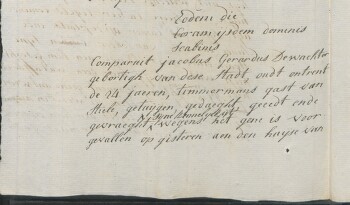 Eodem die
coram ijsdem dominis
Scabinis
Comparuit Jacobus Gerardus Dewachter
geboortigh van dese Stadt, oudt ontrent
de 24 jaeren, timmermans gast van
Stiele, getuygen, gedaeght, geeedt ende
gevraeght wegens het gene is voor
gevallen op gisteren aen den huyse van